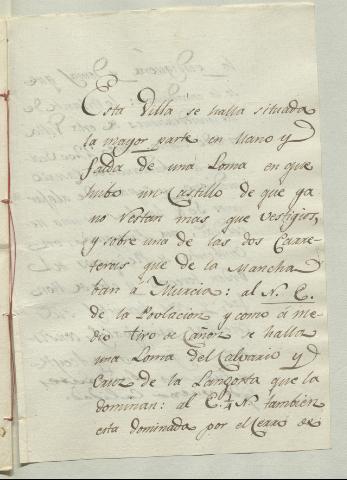 Esta Villa se halla situada
la mayor parte en llano y
falda de una Loma en que
hubo un Castillo de que ya
no restan mas que vestigios,
y sobre una de las dos Carre-
teras que de la Mancha
ban à Murcia: al N. E.
de la Poblacion y como à me-
dio tiro de Cañon se halla
una Loma del Calvario y
Cruz de la Langosta que la
dominan: al E. ¼ N. tambien
esta dominada por el Cerro de